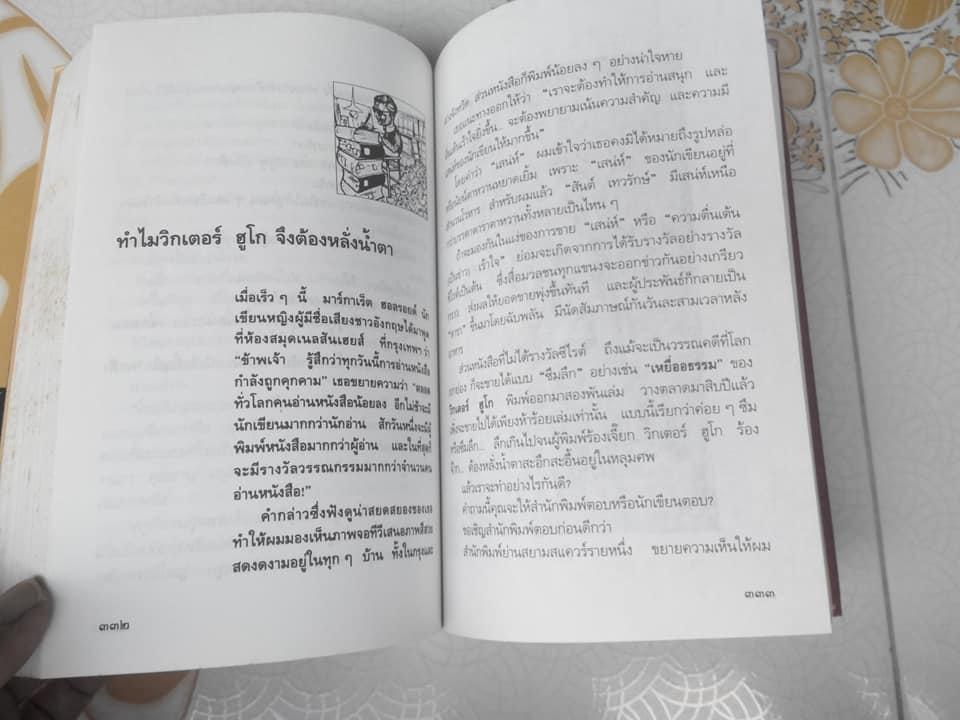 ทำไมวิกเตอร์ ฮูโก จึงต้องหลั่งน้ำตา
เมื่อเร็ว ๆ นี้ มาร์กาเร็ต ดรอยด์ นัก
เขียนหญิงผู้มีชื่อเสียงชาวอังกฤษได้มาพูด
ที่ห้องสมุดเนลสันเฮยส์ ที่กรุงเทพฯ ว่า
“ข้าพเจ้า รู้สึกว่าทุกวันนี้การอ่านหนังสือ
กำลังถูกคุกคาม” เธอขยายความว่า “ตลอด
ทั่วโลกคนอ่านหนังสือน้อยลง อีกไม่ช้าจะมี
นักเขียนมากกว่านักอ่าน สักวันหนึ่งจะมีผู้
พิมพ์หนังสือมากกว่าผู้อ่าน และในที่สุดก็
จะมีรางวัลวรรณกรรมมากกว่าจำนวนคน
อ่านหนังสือ!”
คำกล่าวซึ่งฟังดูน่าสยดสยองของเธอ
ทำให้ผมมองเห็นภาพจอทีวีเสนอภาพสีสวย
สดงดงามอยู่ในทุก ๆ บ้าน ทั้งในกรุงและ
๓๓๒
ส่วนหนังสือก็พิมพ์น้อยลง ๆ อย่างน่าใจหาย
ทางออกให้ว่า “เราจะต้องทำให้การอ่านสนุก และ
ยิ่งขึ้น.. จะต้องพยายามเน้นความสำคัญ และความมี
ของนักเขียนให้มากขึ้น”
โดยคำว่า “เสน่ห์” ผมเข้าใจว่าเธอคงมิได้หมายถึงรูปหล่อ
หวานหยาดเยิ้ม เพราะ “เสน่ห์” ของนักเขียนอยู่ที่
สำหรับผมแล้ว “สันต์ เทวรักษ์” มีเสน่ห์เหนือ
ดาราตาหวานทั้งหลายเป็นไหน ๆ
ถ้าจะมองกันในแง่ของการขาย “เสน่ห์” หรือ “ความตื่นเต้น
เร้าใจ” ย่อมจะเกิดจากการได้รับรางวัลอย่างรางวัล
เป็นต้น ซึ่งสื่อมวลชนทุกแขนงจะออกข่าวกันอย่างเกรียว
ส่งผลให้ยอดขายพุ่งขึ้นทันที และผู้ประพันธ์ก็กลายเป็น
ขึ้นมาโดยฉับพลัน มีนัดสัมภาษณ์กันวันละสามเวลาหลัง
อาหาร
ส่วนหนังสือที่ไม่ได้รางวัลซีไรต์ ถึงแม้จะเป็นวรรณคดีที่โลก
ก็จะขายได้แบบ “ซึมลึก” อย่างเช่น “เหยื่ออธรรม” ของ
วิกเตอร์ ฮูโก พิมพ์ออกมาสองพันเล่ม วางตลาดมาสิบปีแล้ว
จะขายไปได้เพียงห้าร้อยเล่มเท่านั้น แบบนี้เรียกว่าค่อย ๆ ซึม
หรือซึมลึก.. ลึกเกินไปจนผู้พิมพ์ร้องเจี๊ยก วิกเตอร์ ฮูโก ร้อง
ต้องหลั่งน้ำตาสะอึกสะอื้นอยู่ในหลุมศพ
แล้วเราจะทำอย่างไรกันดี?
คำถามนี้คุณจะให้สำนักพิมพ์ตอบหรือนักเขียนตอบ?
ขอเชิญสำนักพิมพ์ตอบก่อนดีกว่า
สำนักพิมพ์ย่านสยามสแควร์รายหนึ่ง ขยายความเห็นให้ผม
๓๓๓